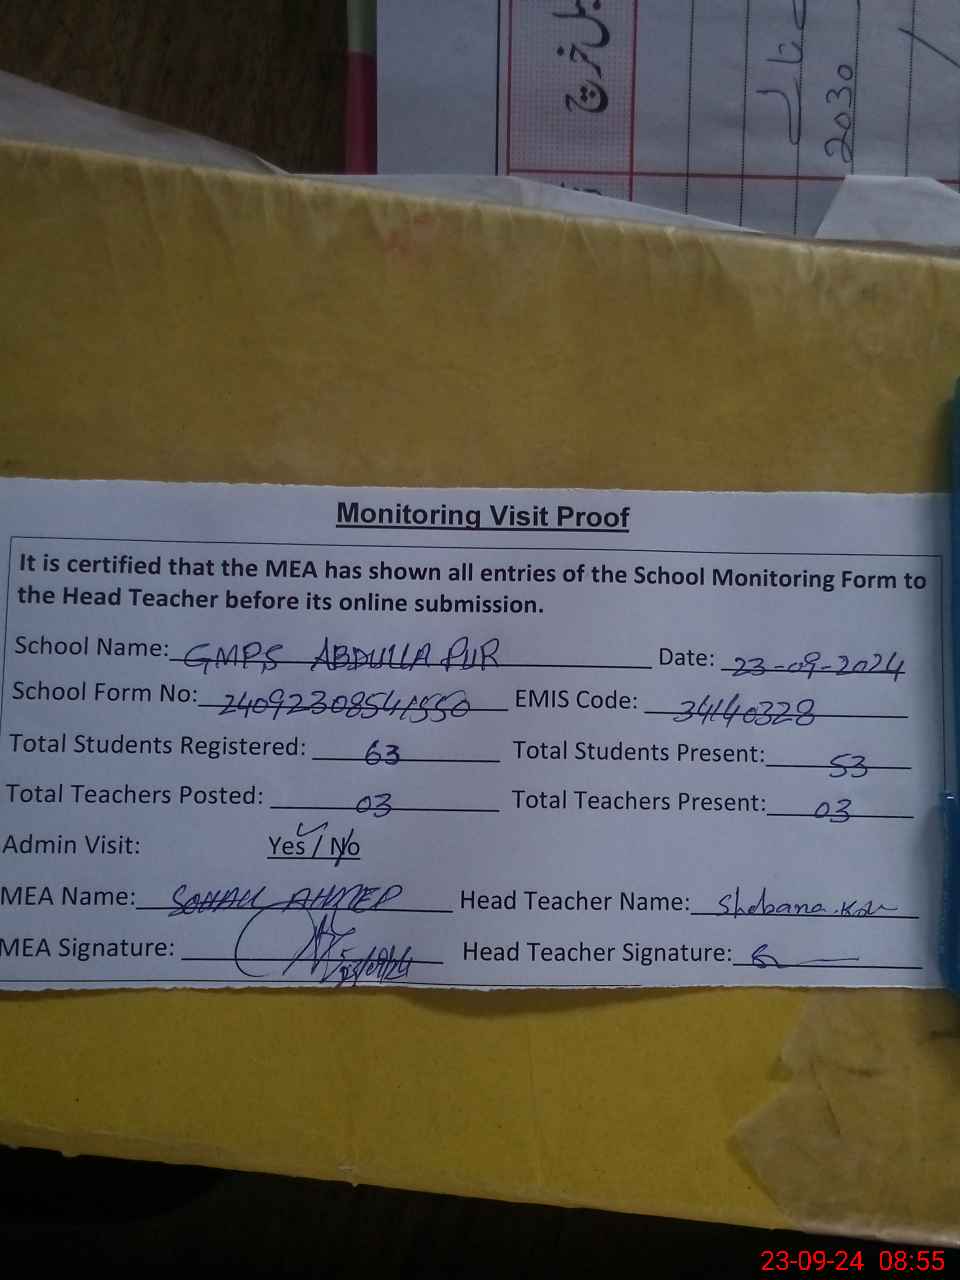 2030
Monitoring Visit Proof
It is certified that the MEA has shown all entries of the School Monitoring Form to
the Head Teacher before its online submission.
School Name: GMPS ABDULLA PUR Date: 23-09-2024
School Form No: EMIS Code: 34140328
Total Students Registered: 63 Total Students Present: 53
Total Teachers Posted: 03 Total Teachers Present: 03
Admin Visit: Yes / No
MEA Name: SOHAIL AHMED Head Teacher Name: Shabana
MEA Signature: Head Teacher Signature:
23-09-24 08:55